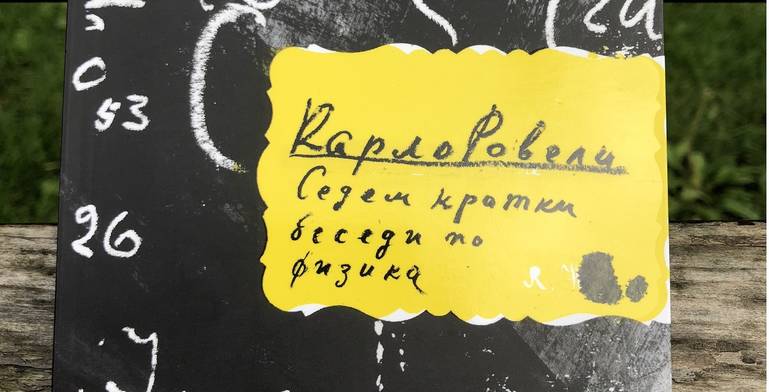 53
26
Карло Ровели
Седем кратки
беседи по
физика